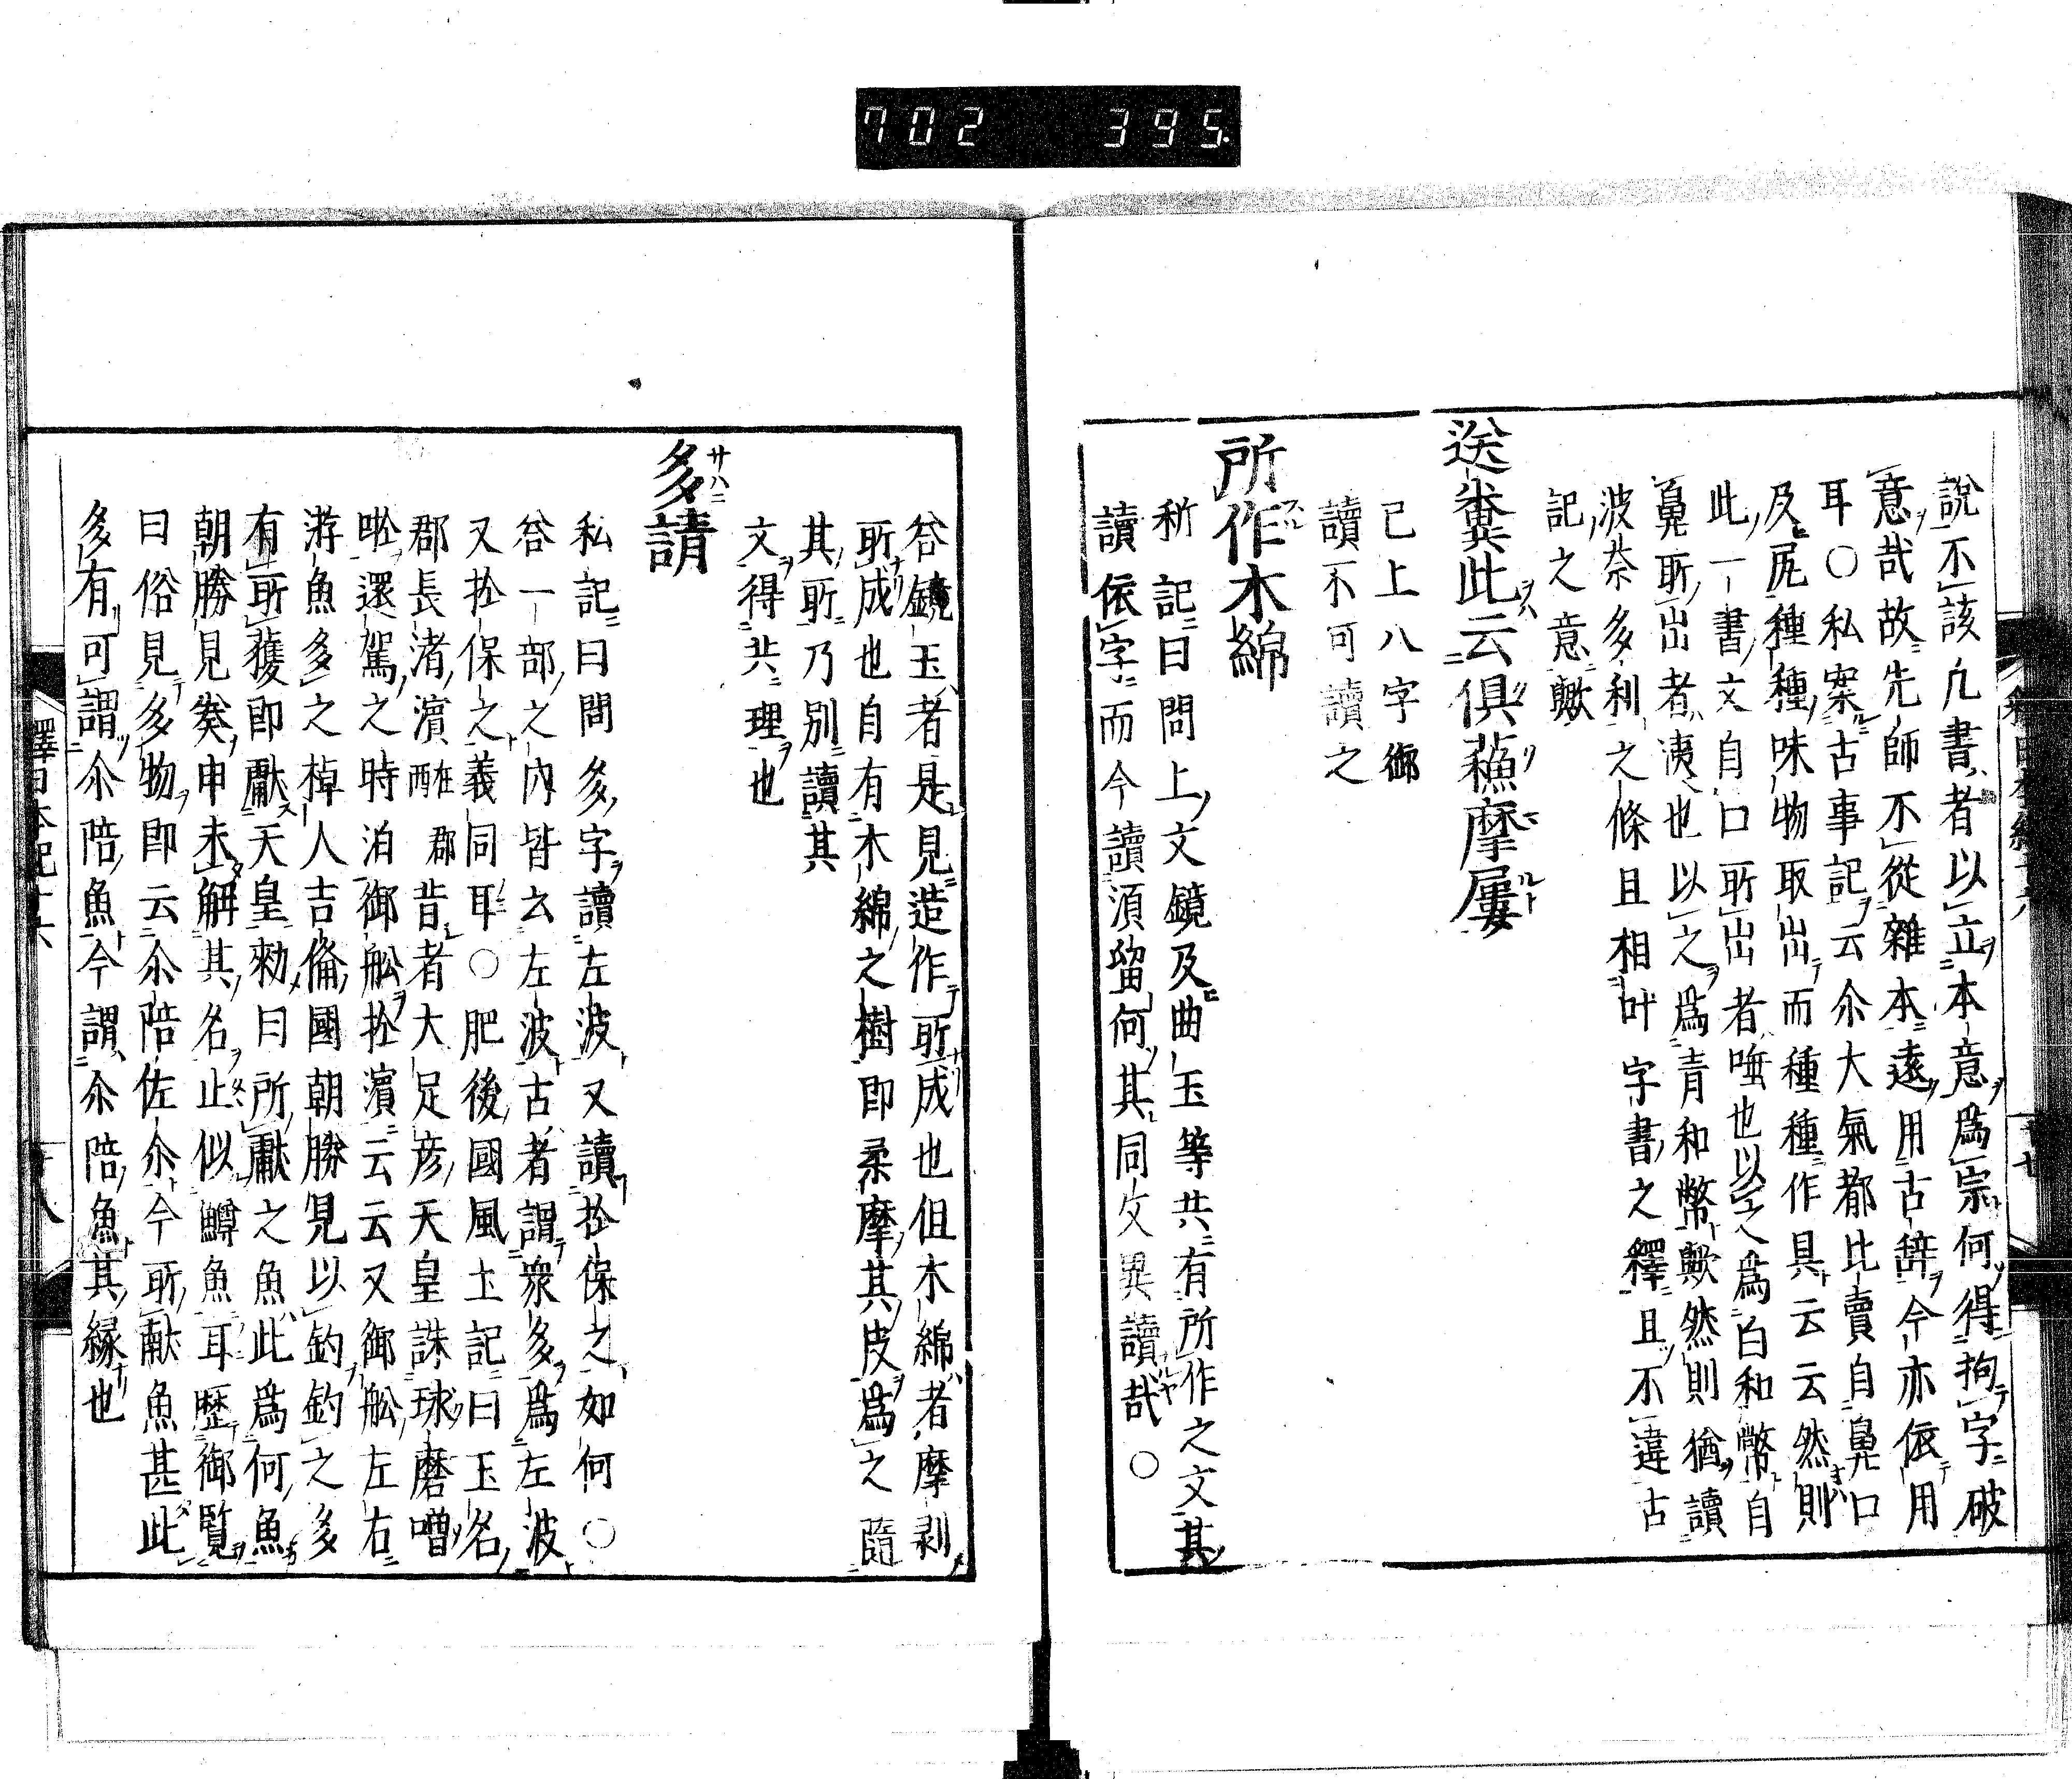 702 395
説不該凡書者以立本意爲宗何得拘字破
意哉故先師不從雑本遠用古辞今亦依用
耳○私案古事記云尒大氣都比賣自鼻口
及尻種種味物取出而種種作具云云然則
此一書文自口所出者唾也以之爲白和幣自
鼻所出者洟也以之爲青和幣歟然則猶讀
波奈多利之條且相叶字書之釋且不違古
記之意歟
送糞此云倶蘓摩屢
已上八字御
讀不可讀之
所作木綿
私記曰問上文鏡及曲玉等共有所作之文其
讀依字而今讀須留何其同文異讀哉○
答鏡玉者是見造作所成也但木綿者摩剥
所成也自有木綿之樹即柔摩其皮爲之隨
其所乃別讀其
文得共理也
多請
廿八
私記曰問多字讀左波又讀於保之如何○
答一部之内皆云左波古者謂衆多爲左波
又於保之義同耳○肥後國風土記曰玉名
郡長渚濱 郡昔者大足彦天皇誅球磨噌
唹還駕之時泊御舩於濱云云又御舩左右
游魚多之棹人吉備國朝勝見以釣釣之多
有所獲即獻天皇勅曰所獻之魚此爲何魚
朝勝見奏申未解其名止似鱒魚耳歴御覧
曰俗見多物即云尒陪佐尒今所献魚甚此
多有可謂尒陪魚今謂尒陪魚其縁也
釋日本紀十六